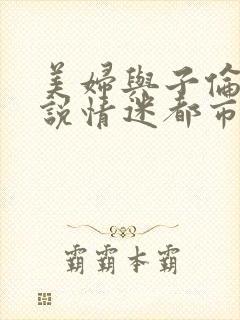 美婦與子倫
說情迷都市
霸霸本霸